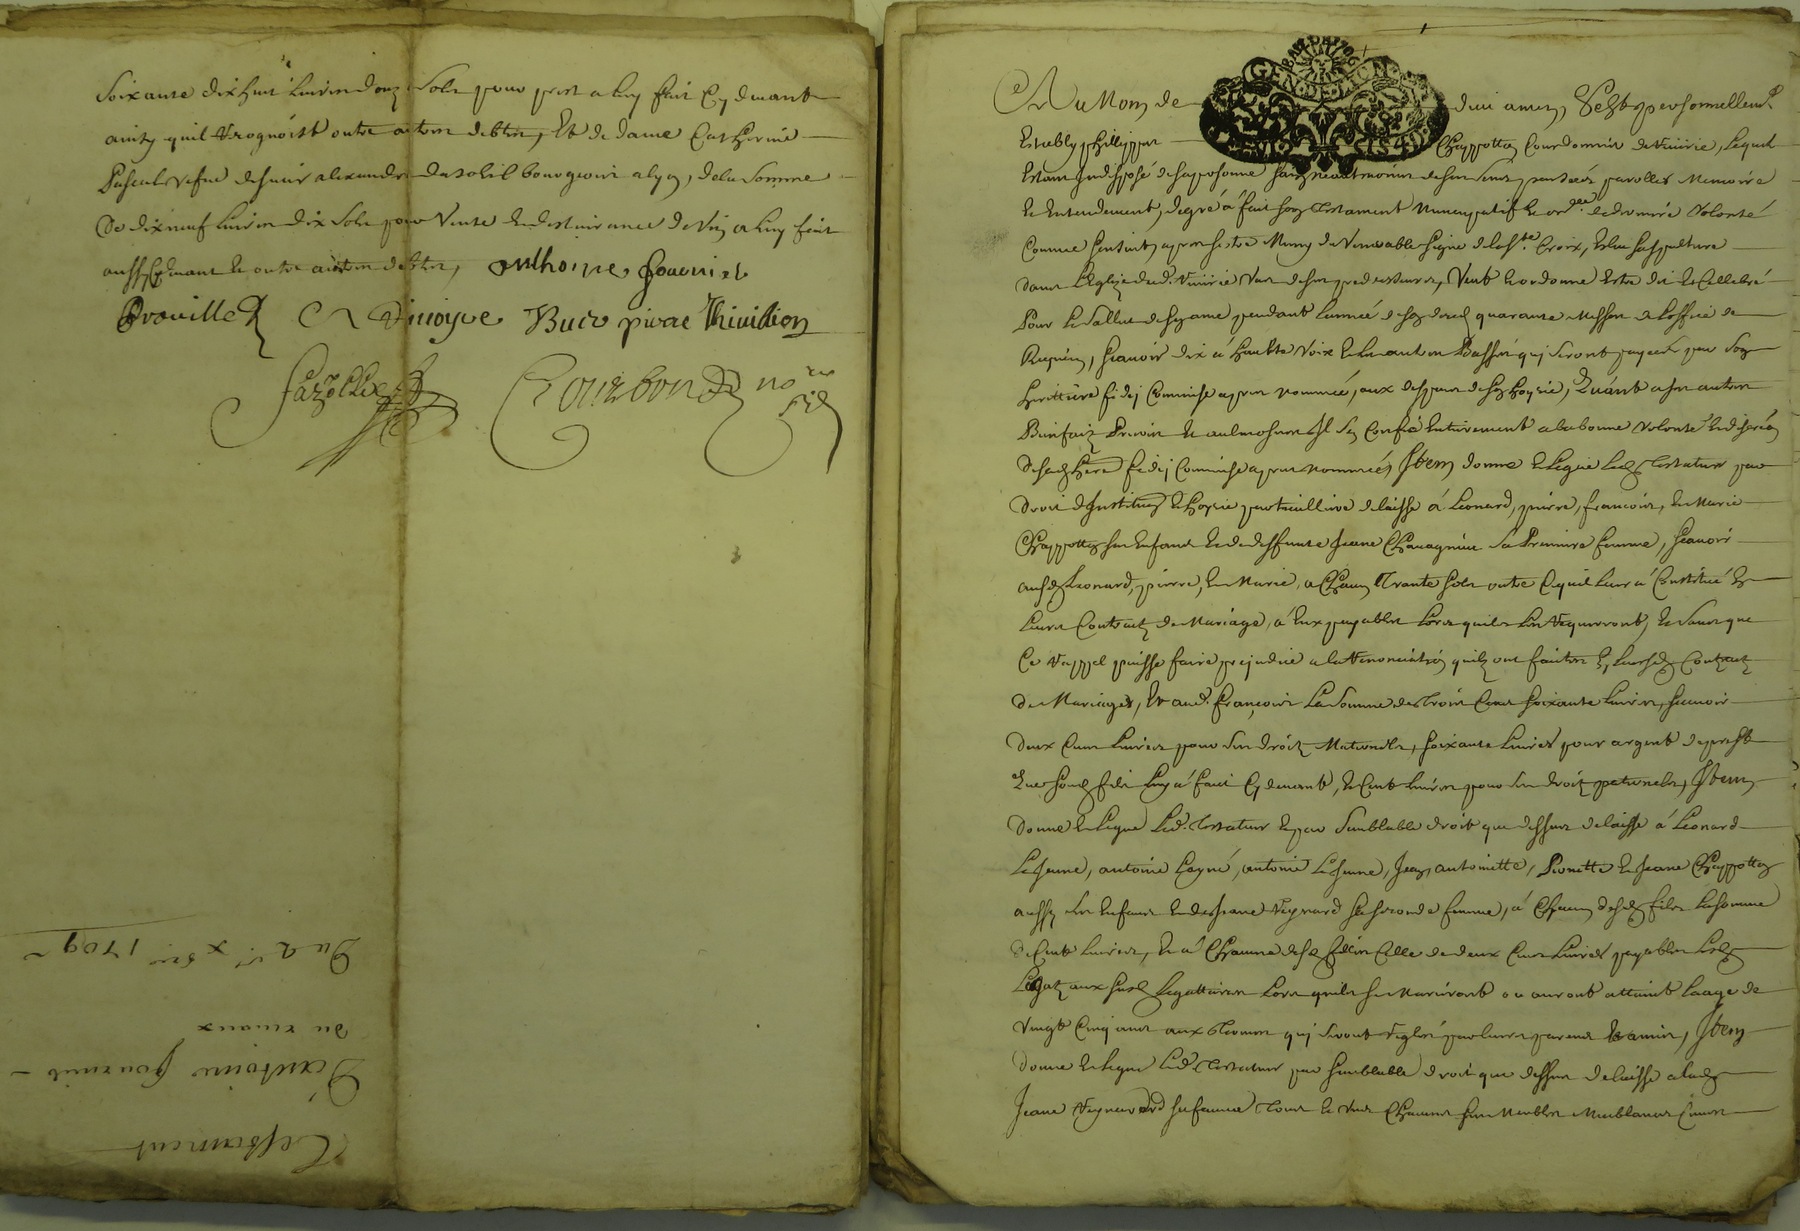 Soixante dix huit livres douz sols pour prest a luy fait cy devant
ainsy quil recognoist outre autres debtes, Et de dame Catherine
Pascal vefve de sieur alexandre dusoleil bourgeois a lyon, de la somme
de dix neuf livres dix sols pour vente et deslivrance de vin a luy fait
aussy cy devant et outre autres debtes, anthoine Gouvnist
Brouilled Dinoyre Buco pirae Thivillion
Sazollie Courbon no.re
Du 2.e x bre 1709
du ruaux
D'antoine fournis
Testament
Au Nom de dieu amen, Sest personnellem.t
Estably phillippe Chappotton Courdonnier de Viuirie, Lequel
Estant Indisposé de sa personne sain neantmoins de ses sens pensées parolles Memoire
et Entendement, degré à fait son testament Nuncupatif et ord.ce de derniere Volonté
Comme sensuit, apres sestre Muny du Venerable signe de la S.te Croix, Eslu sa sepulture
dans L'Eglize dud. Viuirie Vas de ses predecesseurs, Veut et ordonne Estre dit et Cellebré
Pour le Sallut de son ame pendant l'année de son deceds quarante Messes de l'office de
Requiem, scavoir dix à haulte Voix et les autres Basses qui seront payées par son
heritiere fidej Commise apres nommée, aux despens de son hoyrie, Quant a ses autres
Bienfaitz Prieres et aulmosnes Il sen Confie Entierement a la bonne Volonté et discretion
de sad. here fidej Commise apres nommée, Item donne et Legue Led. testateur par
droit d'Institution et hoyrie particulliere delaisse à Leonard, pierre, francois, et Marie
Chappotton ses Enfants et de deffunte Jeane Chavagnieu Sa Premiere femme, scavoir
ausd. Leonard, pierre, et Marie, a chacun Trante sols outre Ce quil leur à Constitué En
Leurs Contratz de Mariage, à Eux payables Lors quils Les requerront, et sans que
Ce rappel puisse faire prejudice a la renonciation quils ont faittes En leursd. Contratz
de Mariages, Et aud. françois La Somme de trois Cens soixante livres, scavoir
deux Cens livres pour ses droitz Maternels, soixante livres pour argent de prest
que sond. fils luy à fait Cy devant, et Cent livres pour ses droitz paternels, Item
donne et Legue Led. testateur et par semblable droit que dessus delaisse à Leonard
Le Jeune, antoine Layné, antoine Le Jeune, Jean, antoinette, Pionette et Jeane Chappotton
aussy ses Enfants et de Jeane Reynard sa seconde femme, à Chacun desd. fils la somme
de Cent livres, Et à Chacune desd. filles Celle de deux Cens livres payables Lesd.
Legatz aux susd. Legattaires Lors quils se Marieront ou auront attaint Laage de
Vingt Cinq ans aux termes qui seront reglés par leurs parents et amis, Item
donne et Legue Led. testateur par semblable droit que dessus delaisse a lad.
Jeane Reynard sa femme tous et Uns Chacuns ses Meubles Meublants